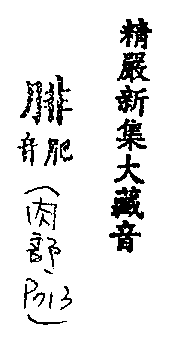 精嚴新集大藏音
腓
音肥
(肉部